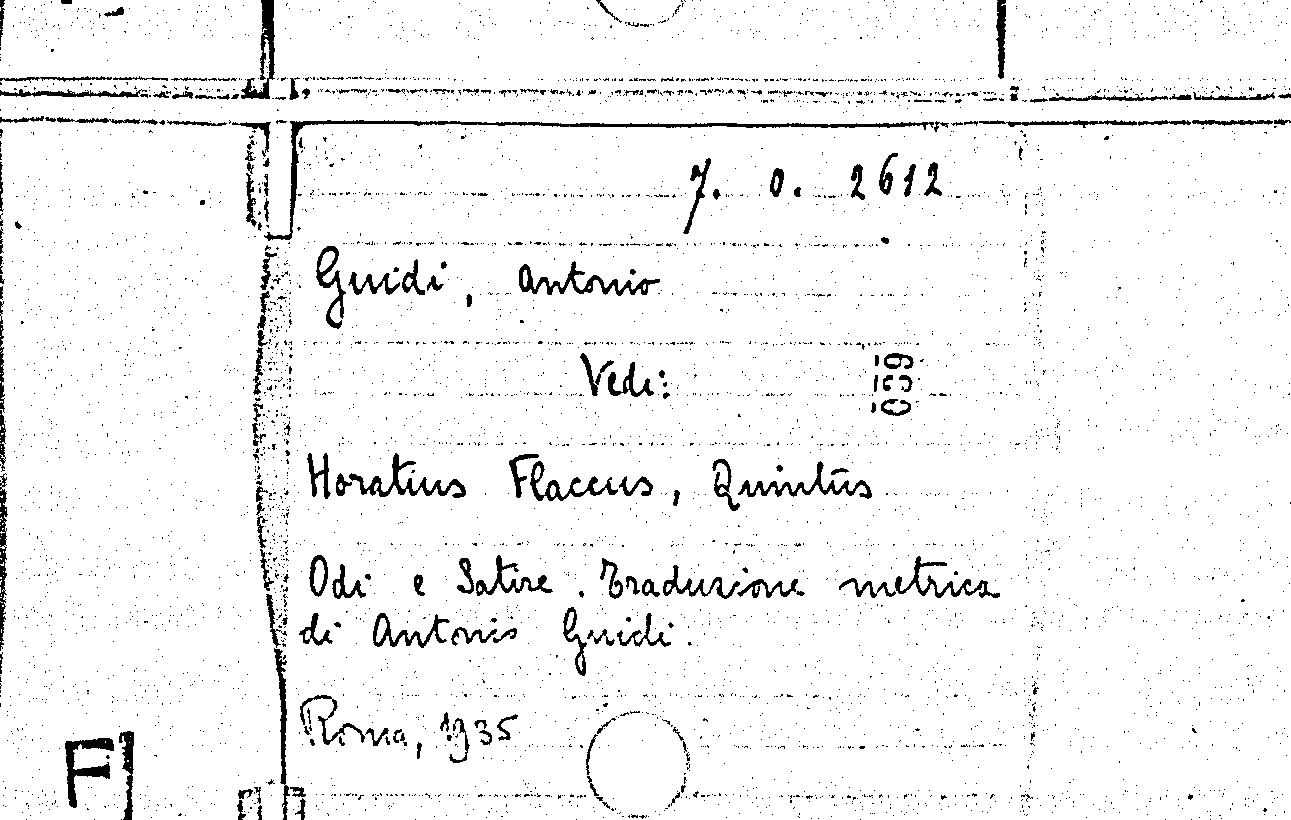 7. O. 2612
Guidi, Antonio
Vedi:
039
Horatius Flaccus, Quintus
Odi e Satire. Traduzione metrica
di Antonio Guidi.
Roma, 1935